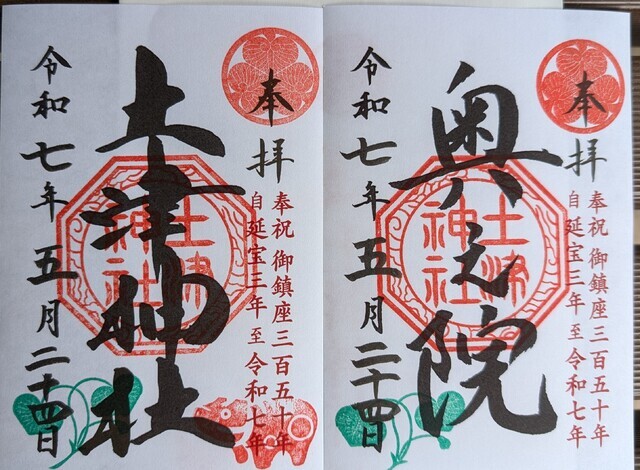 奉拝
奉祝 御鎮座三百五十年
自延宝三年至令和七年
土津神社
土津
神社
令和七年五月二十四日
奉拝
奉祝 御鎮座三百五十年
自延宝三年至令和七年
奥之院
土津
神社
令和七年五月二十四日